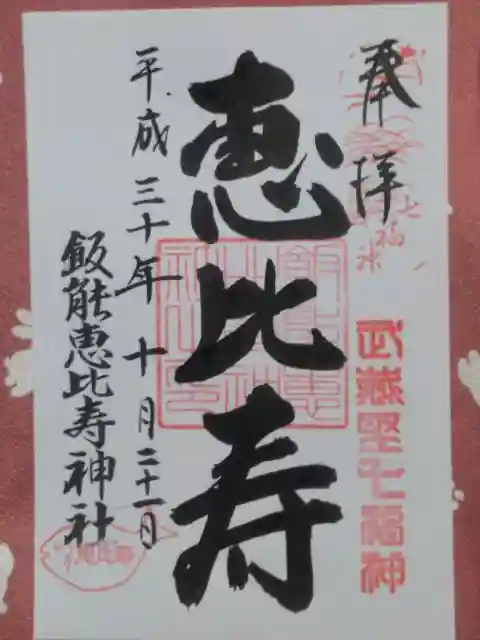 奉拝
七福
武蔵野七福神
恵比寿
平成三十年十月二十一日
飯能恵比寿神社